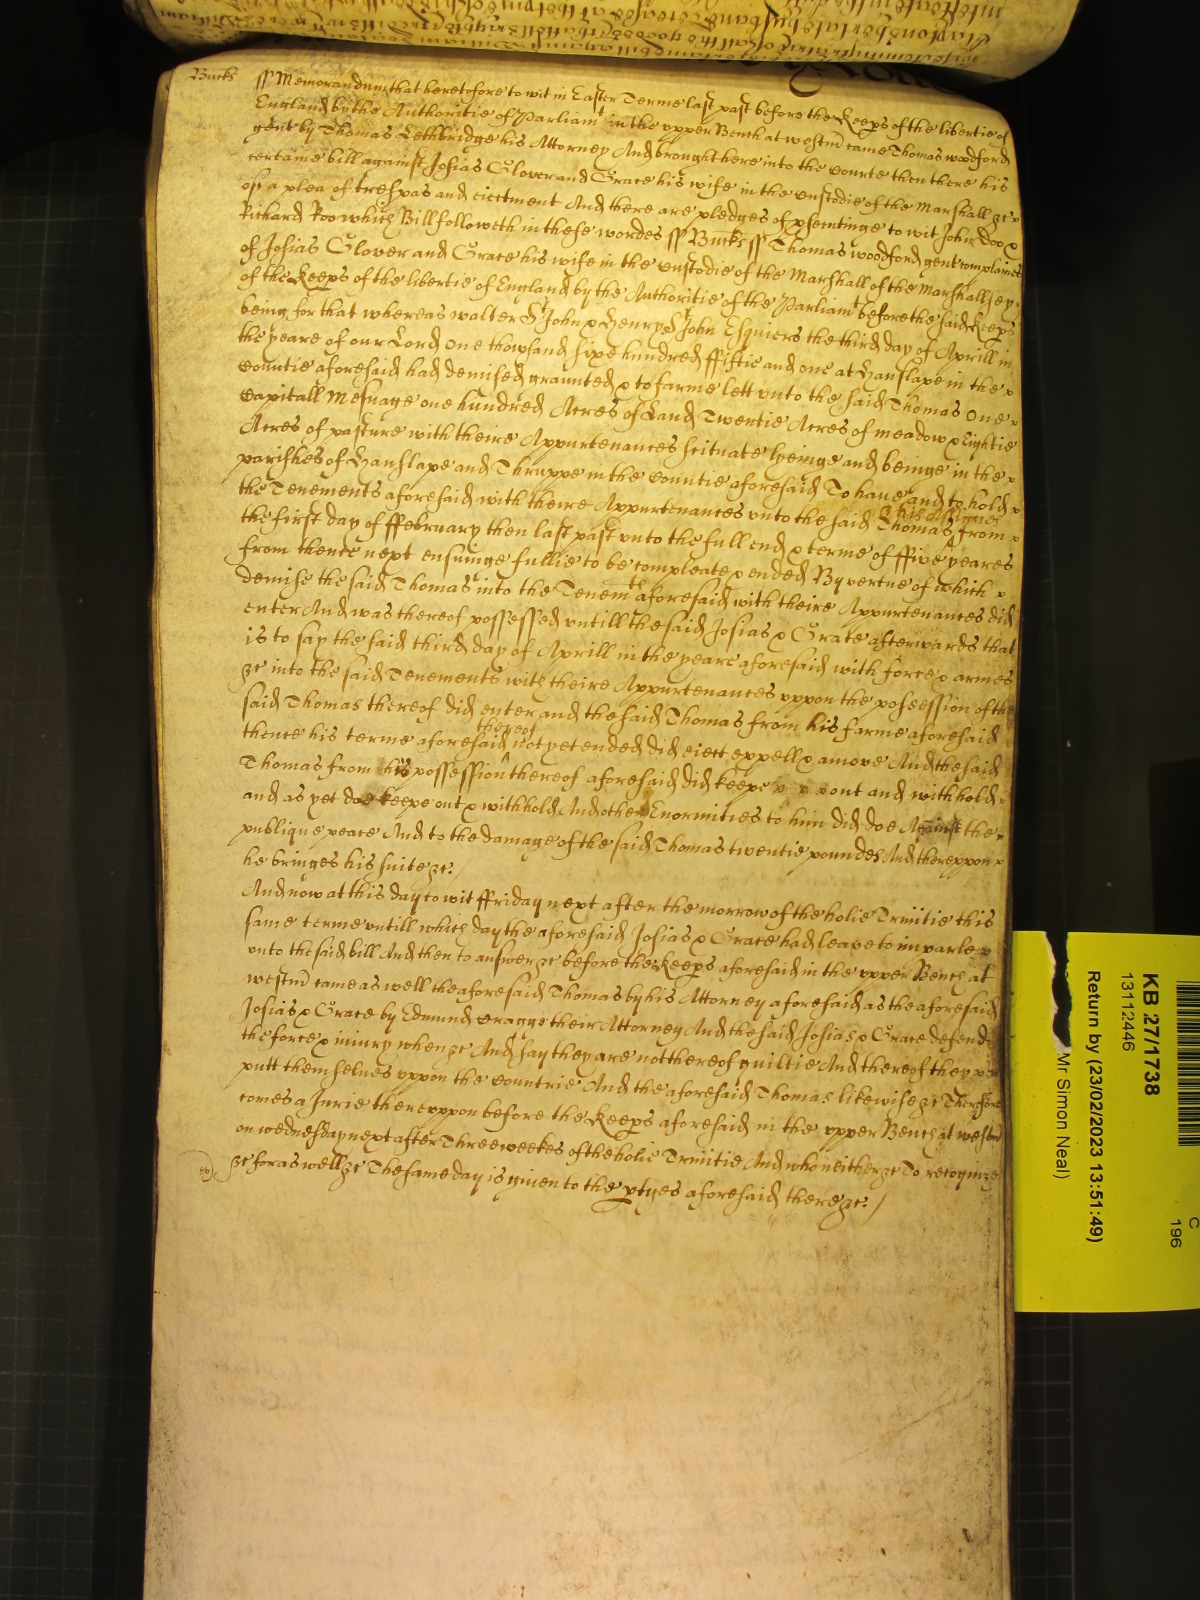 Bucks ss Memorandum that heretofore to wit in Easter Terme last past before the Keeps of the libertie of
England by the Authoritie of Parliamt in the upper Bench at westm̃ came Thomas woodford
gent by Thomas Lethbridge his Attorney And brought here into the Courte then there his
certaine bill against Josias Glover and Grace his wife in the custodie of the Marshall &c
of a plea of trespas and eiectment And there are pledges of psecutinge to wit John Doo &
Richard Roo which Bill followeth in these wordes ss Bucks ss Thomas woodford gent complaines
of Josias Glover and Grace his wife in the custodie of the Marshall of the Marshallsey
of the Keeps of the libertie of England by the Authoritie of the Parliamt before the said Keeps
being for that whereas walter St John & Henry St John Esquiers the third day of Aprill in
the yeare of our Lord One thowsand sixe hundred ffiftie and one at Hanslape in the
Countie aforesaid had demised graunted & to farme lett unto the said Thomas One
Capitall Mesuage one hundred Acres of Land Twentie Acres of meadow & Eightie
Acres of pasture with theire Appurtenances scituate lyeinge and beinge in the
parishes of Hanslape and Thruppe in the Countie aforesaid To have and to hold
the Tenements aforesaid with theire Appurtenances unto the said Thomas & his assignes from
the first day of ffebruary then last past unto the full end & terme of ffive yeares
from thence next ensuinge fullie to be compleate & ended By vertue of which
demise the said Thomas into the Tenemts aforesaid with theire Appurtenances did
enter And was thereof possessed untill the said Josias & Grace afterwards that
is to say the said third day of Aprill in the yeare aforesaid with force & armes
&c into the said Tenements with theire Appurtenances uppon the possession of the
said Thomas thereof did enter and the said Thomas from his farme aforesaid
thence his terme aforesaid thereof not yet ended did eiect expell & amove And the said
Thomas from his possession thereof aforesaid did keepe out and withhold
and as yet doe keepe out & withhold And other Enormities to him did doe Against the
publique peace And to the damage of the said Thomas twentie poundes And thereuppon
he bringes his suite &c.
And now at this day to wit ffriday next after the morrow of the holie Trinitie this
same terme untill which day the aforesaid Josias & Grace had leave to imparle
unto the said bill And then to answer &c before the Keeps aforesaid in the upper Bench at
westm̃ came as well the aforesaid Thomas by his Attorney aforesaid as the aforesaid
Josias & Grace by Edmund Cragge their Attorney And the said Josias & Grace defend
the force & iniury when &c And say they are not thereof guiltie And thereof they
putt themselves uppon the Countrie And the aforesaid Thomas likewise &c Therefore
comes a Jurie thereuppon before the Keeps aforesaid in the upper Bench at westm̃
on wednesday next after Three weekes of the holie Trinitie And who neither &c To recognize
&c for as well &c The same day is given to the ptyes aforesaid there &c. /
KB 27/1738
13112446
Return by (23/02/2023 13:51:49)
Mr Simon Neal)
C
196